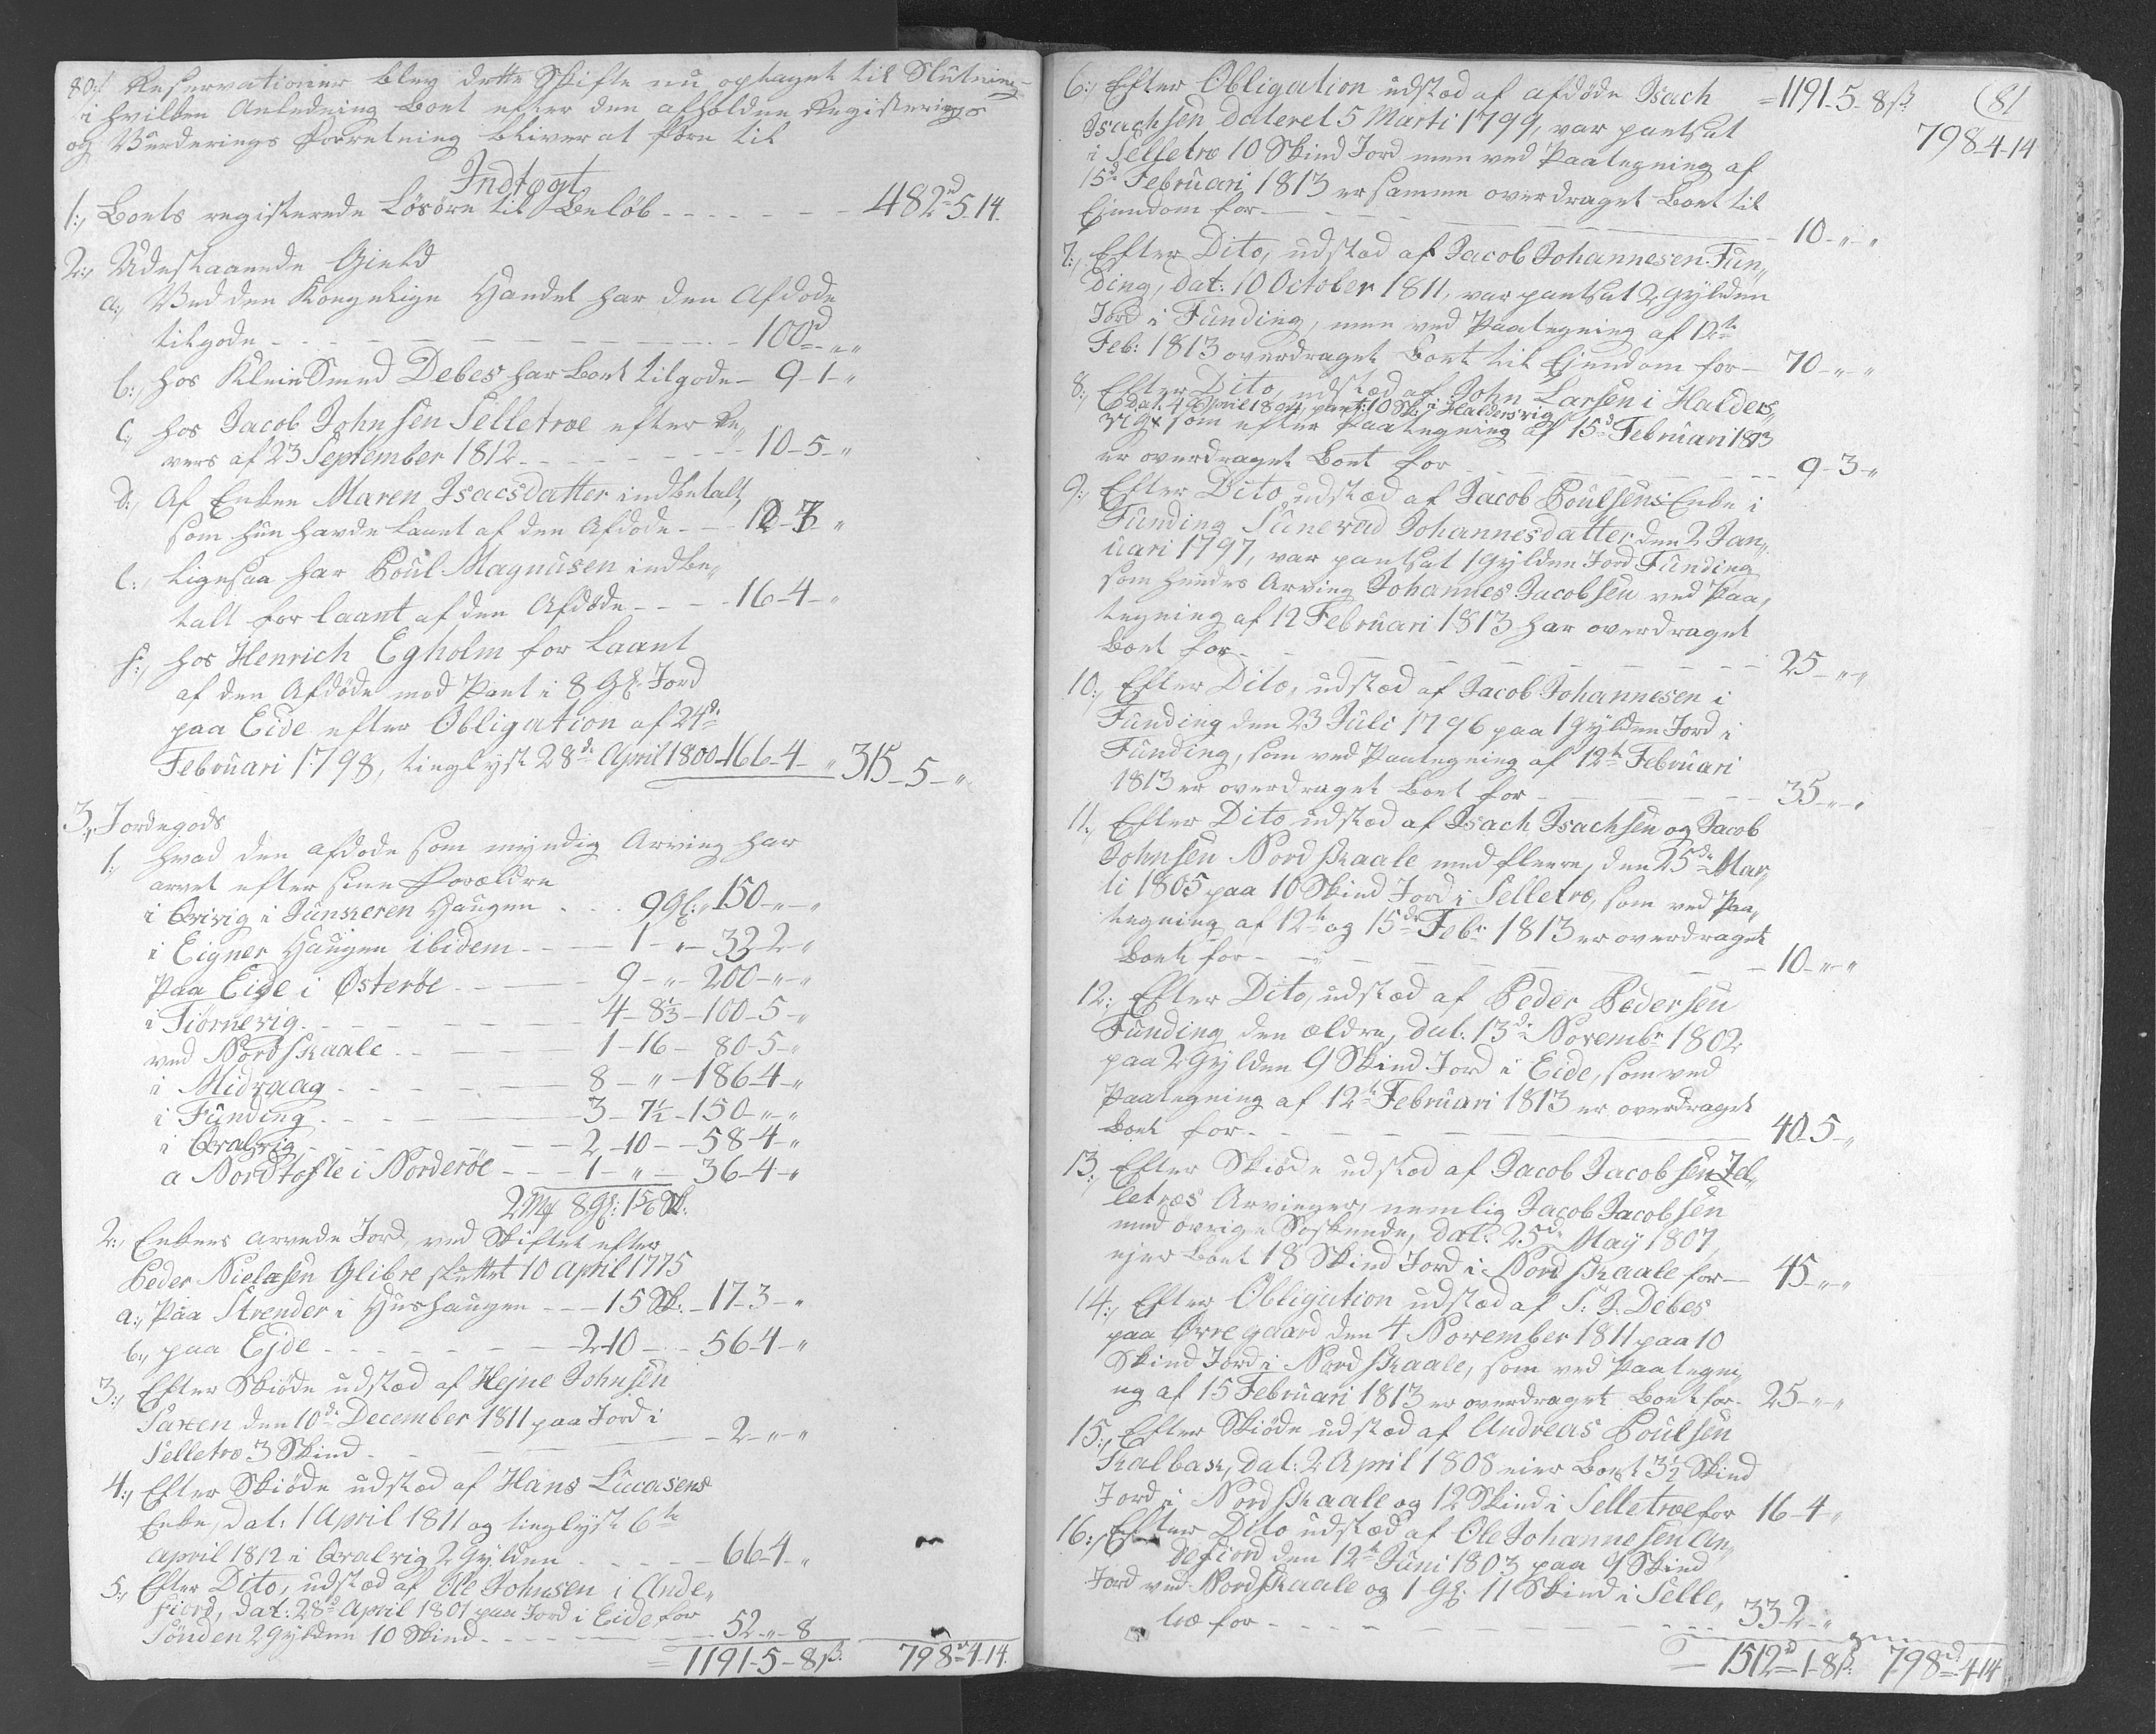 80./ Reservationer blev dette Skifte nu optaget til Slutning
i hvilken Anledning Boet efter den afholdne Registerings
og Vurderings Forretning bliver at føre til
Indtægt
1:, Boets registerede Løsøre til Beløb - - - 482rd 5. 14.
2:, Udestaaende Gield
a:, Ved den Kongelige Handel har den Afdøde
tilgode - - - 100rd „ „
b:, hos KleinSmed Debes har Boet tilgode - 9-1-„
c:, hos Jacob Johnsen Selletræ efter Re„
vers af 23 September 1812 - - - 10-5-„
d:, Af Enken Maren Isacsdatter indbetalt,
som hun havde laant af den Afdøde - - 12-3-„
e:, ligesaa har Poul Magnusen indbe„
talt for laant af den Afdøde - - - 16-4-„
f:, hos Henrich Egholm for laant
af den Afdøde mod Pant i 8 Gl. Jord
paa Eide efter Obligation af 24de
Februari 1798, tinglyst 28de April 1800 - 166-4-„ 315-5-„
3:, Jordegods
1:, hvad den afdøde som myndig Arving har
arvet efter sine Forældre
i Qvivig i Junkeren Haugen - - - 9 Gl: „ 150-„-„
i Eigner Haugen ibidem - - - 1-„-33-2-„
Paa Eide i Østerøe - - - 9-„-200-„-„
i Tiørnevig - - - 4-8⅓-100-5-„
ved Nordskaale - - - 1-16-80-5-„
i Midvaag - - - 8-„-186-4-„
i Funding - - - 3-7½-150-„-„
i Qvalvig - - - 2-10-58-4-„
a Nordtofte i Norderøe - - - 1-„-36-4-„
2 Mk 8 Gl: 1 5/6 Sk:
2:, Enkens arvede Jord, ved Skiftet efter
Peder Nielæsen Glibre sluttet 10 April 1775
a:, Paa Strender i Hushaugen - - - 15 Sk: - 17-3-„
b:, paa Ejde - - - 2-10 - 56-4-„
3:, Efter Skiøde udstæd af Hejne Johnsen
Saxen den 10de December 1811 paa Jord i
Selletræ 3 Skind - - - 2-„-„
4:, Efter Skiøde udstæd af Hans Lucasens
Enke, dat: 1 April 1811 og tinglyst 6te
April 1812 i Qvalvig 2 Gylden - - - 66-4-„
5:, Efter Dito, udstæd af Ole Johnsen i Ande„
fiord, dat: 28d April 1801 paa Jord i Eide for
Sønden 2 Gylden 10 Skind - - - 52-„-8
= 1191-5-8ß. 798rd-4-14.
(81
6:, Efter Obligation udstæd af afdøde Isach = 1191-5-8ß.
798-4-14
Isachsen dateret 5 Marti 1799, var pantsat
i Selletræ 10 Skind Jord men ved Paategning af
15d Februari 1813 er samme overdraget Boet til
Ejendom for - - - 10-„-„
7:, Efter Dito, udstæd af Jacob Johannesen Fun„
ding, dat: 10 October 1811, var pantsat 2 Gylden
Jord i Funding, men ved Paategning af 12te
Feb: 1813 overdraget Boet til Ejendom for - 70-„-„
8:, Efter Dito, udstæd af John Larsen i Halders„
dat. 4 April 1804, pant: 10 Sk: i Haldersvig
vig som efter Paategning af 15d Februari 1813
er overdraget Boet for - - - 9-3-„
9:, Efter Dito, udstæd af Jacob Poulsens Enke i
Funding Suneva Johannesdatter den 2 Jan„
uari 1797, var pantsat 1 Gylden Jord Funding
som hendes Arving Johannes Jacobsen ved Paa„
tegning af 12 Februari 1813 har overdraget
Boet for - - - 25-„-„
10:, Efter Dito, udstæd af Jacob Johannesen i
Funding den 23 Juli 1796 paa 1 Gylden Jord i
Funding, som ved Paategning af 12te Februari
1813 er overdraget Boet for - - - 35-„-„
11:, Efter Dito udstæd af Isach Isachsen og Jacob
Johnsen Nordskaale med fleere, den 25de Mar„
ti 1805 paa 10 Skind Jord i Selletræ, som ved Paa„
tegning af 12te og 15de Febr 1813 er overdraget
Boet for - - - 10-„-„
12:, Efter Dito, udstæd af Peder Pedersen
Funding den ældre, dat: 13de Novembr 1802
paa 2 Gylden 9 Skind Jord i Eide, som ved
Paategning af 12te Februari 1813 er overdraget
Boet for - - - 40-5-„
13:, Efter Skiøde udstæd af Jacob Jacobsen Sel„
letræs Arvinger, nemlig Jacob Jacobsen
med øvrige Søskende, dat: 25de May 1807,
ejer Boet 18 Skind Jord i Nordskaale for - 45-„-„
14:, Efter Obligation udstæd af S: J: Debes
paa Qvregaard den 4 November 1811 paa 10
Skind Jord i Nordskaale, som ved Paategni„
ng af 15 Februari 1813 er overdraget Boet for - 25-„-„
15:, Efter Skiøde udstæd af Andreas Poulsen
Kalbak, dat: 2 April 1808 eier Boet 3½ Skind
Jord i Nordskaale og 12 Skind i Selletræ for 16-4-„
16:, Efter Dito udstæd af Ole Johannesen An„
defiord den 12te Juni 1803 paa 9 Skind
Jord ved Nordskaale og 1 Gl: 11 Skind i Selle„
træ for - - - 33-2-„
= 1512rd-1-8ß. 798rd-4-14